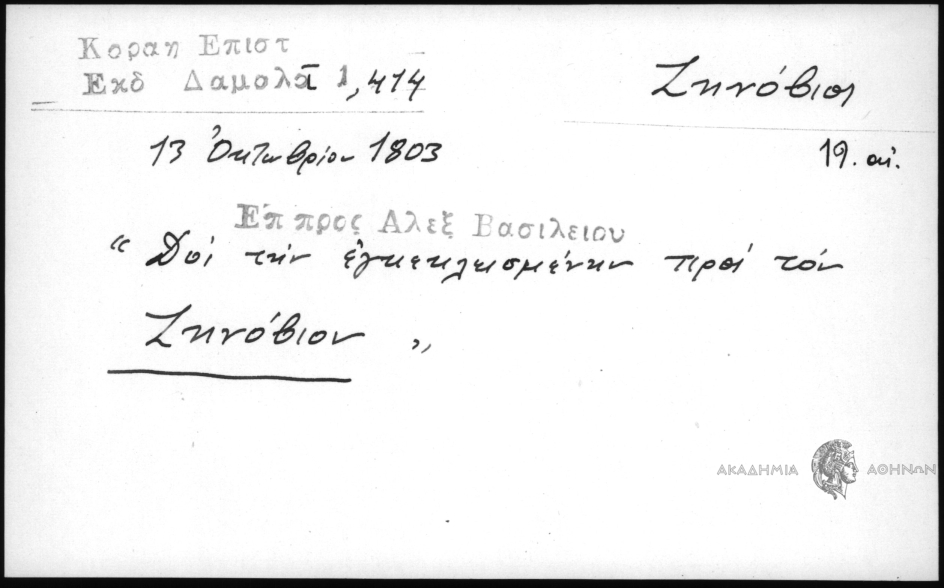 Κοραη Επιστ
Εκδ Δαμαλᾶ 1,414
Ζηνόβιος
13 Ὀκτωβρίου 1803
19. αἰ.
Επ προς Αλεξ Βασιλειου
“ Δὸς τὴν ἐγκεκλεισμένην πρὸς τὸν
Ζηνόβιον „
ΑΚΑΔΗΜΙΑ ΑΘΗΝΩΝ